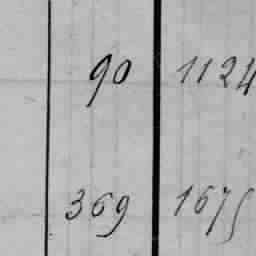 90 1124
369 1675